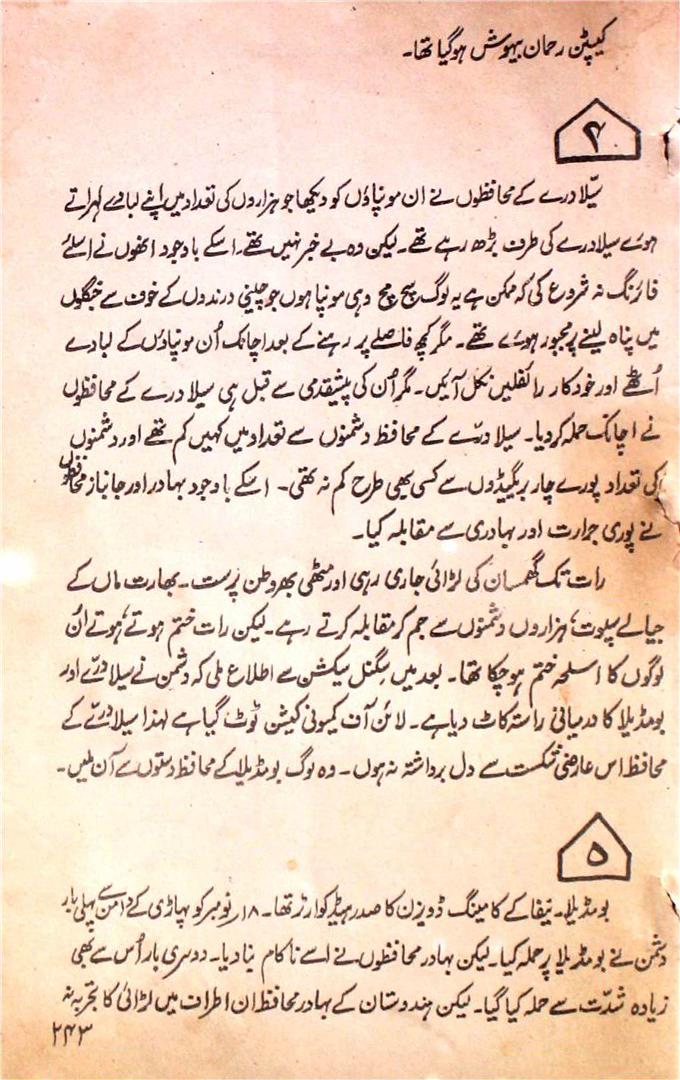 کیپٹن رحمان بیہوش ہوگیا تھا۔
۴
سیلا درے کے محافظوں نے ان مونپاؤں کو دیکھا جو ہزاروں کی تعداد میں اپنے لبادے لہراتے
ہوئے سیلا درے کی طرف بڑھ رہے تھے۔ لیکن وہ بے خبر نہیں تھے۔ اسکے باوجود انھوں نے اسلئے
فائرنگ نہ شروع کی کہ ممکن ہے یہ لوگ سچ مچ وہی مونپا ہوں جو چینی درندوں کے خوف سے جنگلوں
میں پناہ لینے پر مجبور ہوئے تھے۔ مگر کچھ فاصلے پر رہنے کے بعد اچانک اُن مونپاؤں کے لبادے
اُٹھے اور خودکار رائفلیں نکل آئیں۔ مگر اُن کی پیشقدمی سے قبل ہی سیلا درے کے محافظوں
نے اچانک حملہ کردیا۔ سیلا درّے کے محافظ دشمنوں سے تعداد میں کہیں کم تھے اور دشمنوں
کی تعداد پورے چار بریگیڈوں سے کسی بھی طرح کم نہ تھی۔ اسکے باوجود بہادر اور جانباز محافظوں
نے پوری جرارت اور بہادری سے مقابلہ کیا۔
رات تک گھمسان کی لڑائی جاری رہی اور مٹھی بھر وطن پرست۔ بھارت ماں کے
جیالے سپوت، ہزاروں دشمنوں سے جم کر مقابلہ کرتے رہے۔ لیکن رات ختم ہوتے ہوتے اُن
لوگوں کا اسلحہ ختم ہوچکا تھا۔ بعد میں سگنل سیکشن سے اطلاع ملی کہ دشمن نے سیلا درّے اور
بومڈیلا کا درمیانی راستہ کاٹ دیا ہے۔ لائن آف کمیونی کیشن ٹوٹ گیا ہے لہذا سیلا درّے کے
محافظ اس عارضی شکست سے دل برداشتہ نہ ہوں۔ وہ لوگ بومڈیلا کے محافظ دستوں سے آن ملیں۔
۵
بومڈیلا۔ نیفا کے کامینگ ڈویزن کا صدر ہیڈکوارٹر تھا۔ ۱۸ نومبر کو پہاڑی کے دامن سے پہلی بار
دشمن نے بومڈیلا پر حملہ کیا۔ لیکن بہادر محافظوں نے اسے ناکام بنا دیا۔ دوسری بار اُس سے بھی
زیادہ شدّت سے حملہ کیا گیا۔ لیکن ہندوستان کے بہادر محافظ ان اطراف میں لڑائی کا تجربہ نہ
۲۴۳